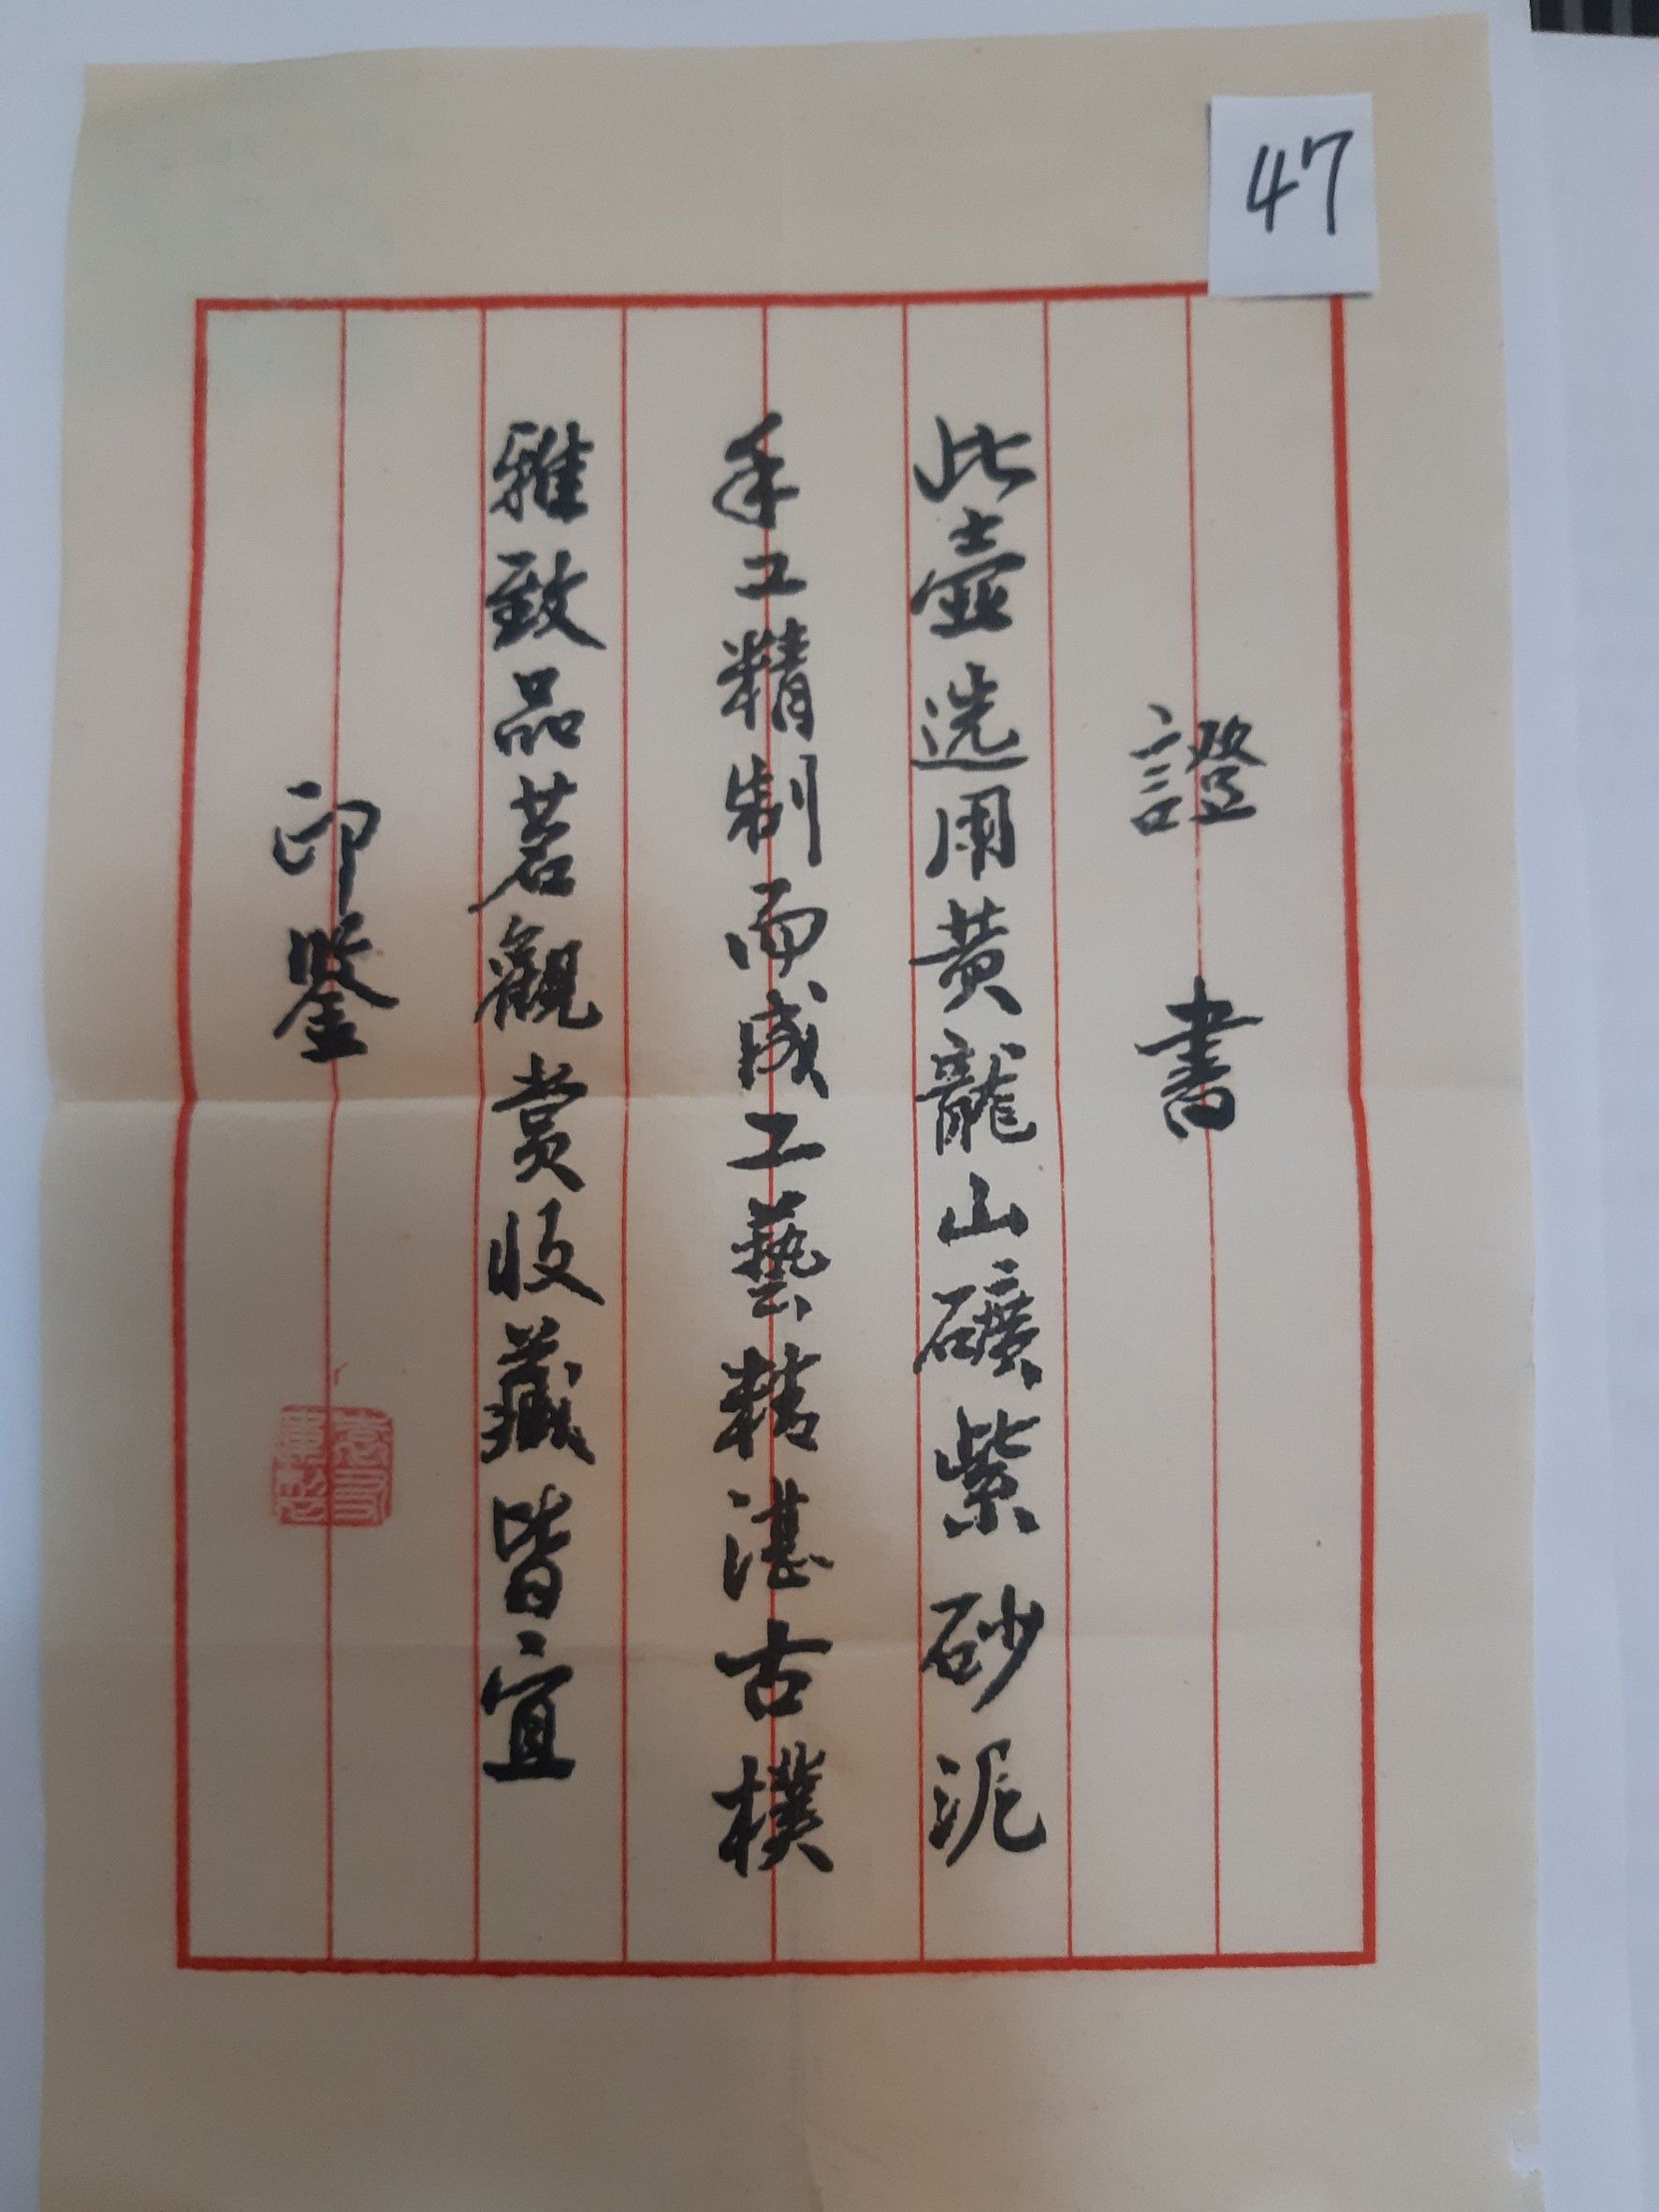 47
證書
此壺选用黄龍山礦紫砂泥
手工精制而成工藝精湛古樸
雅致品茗觀賞收藏皆宜
印鑒